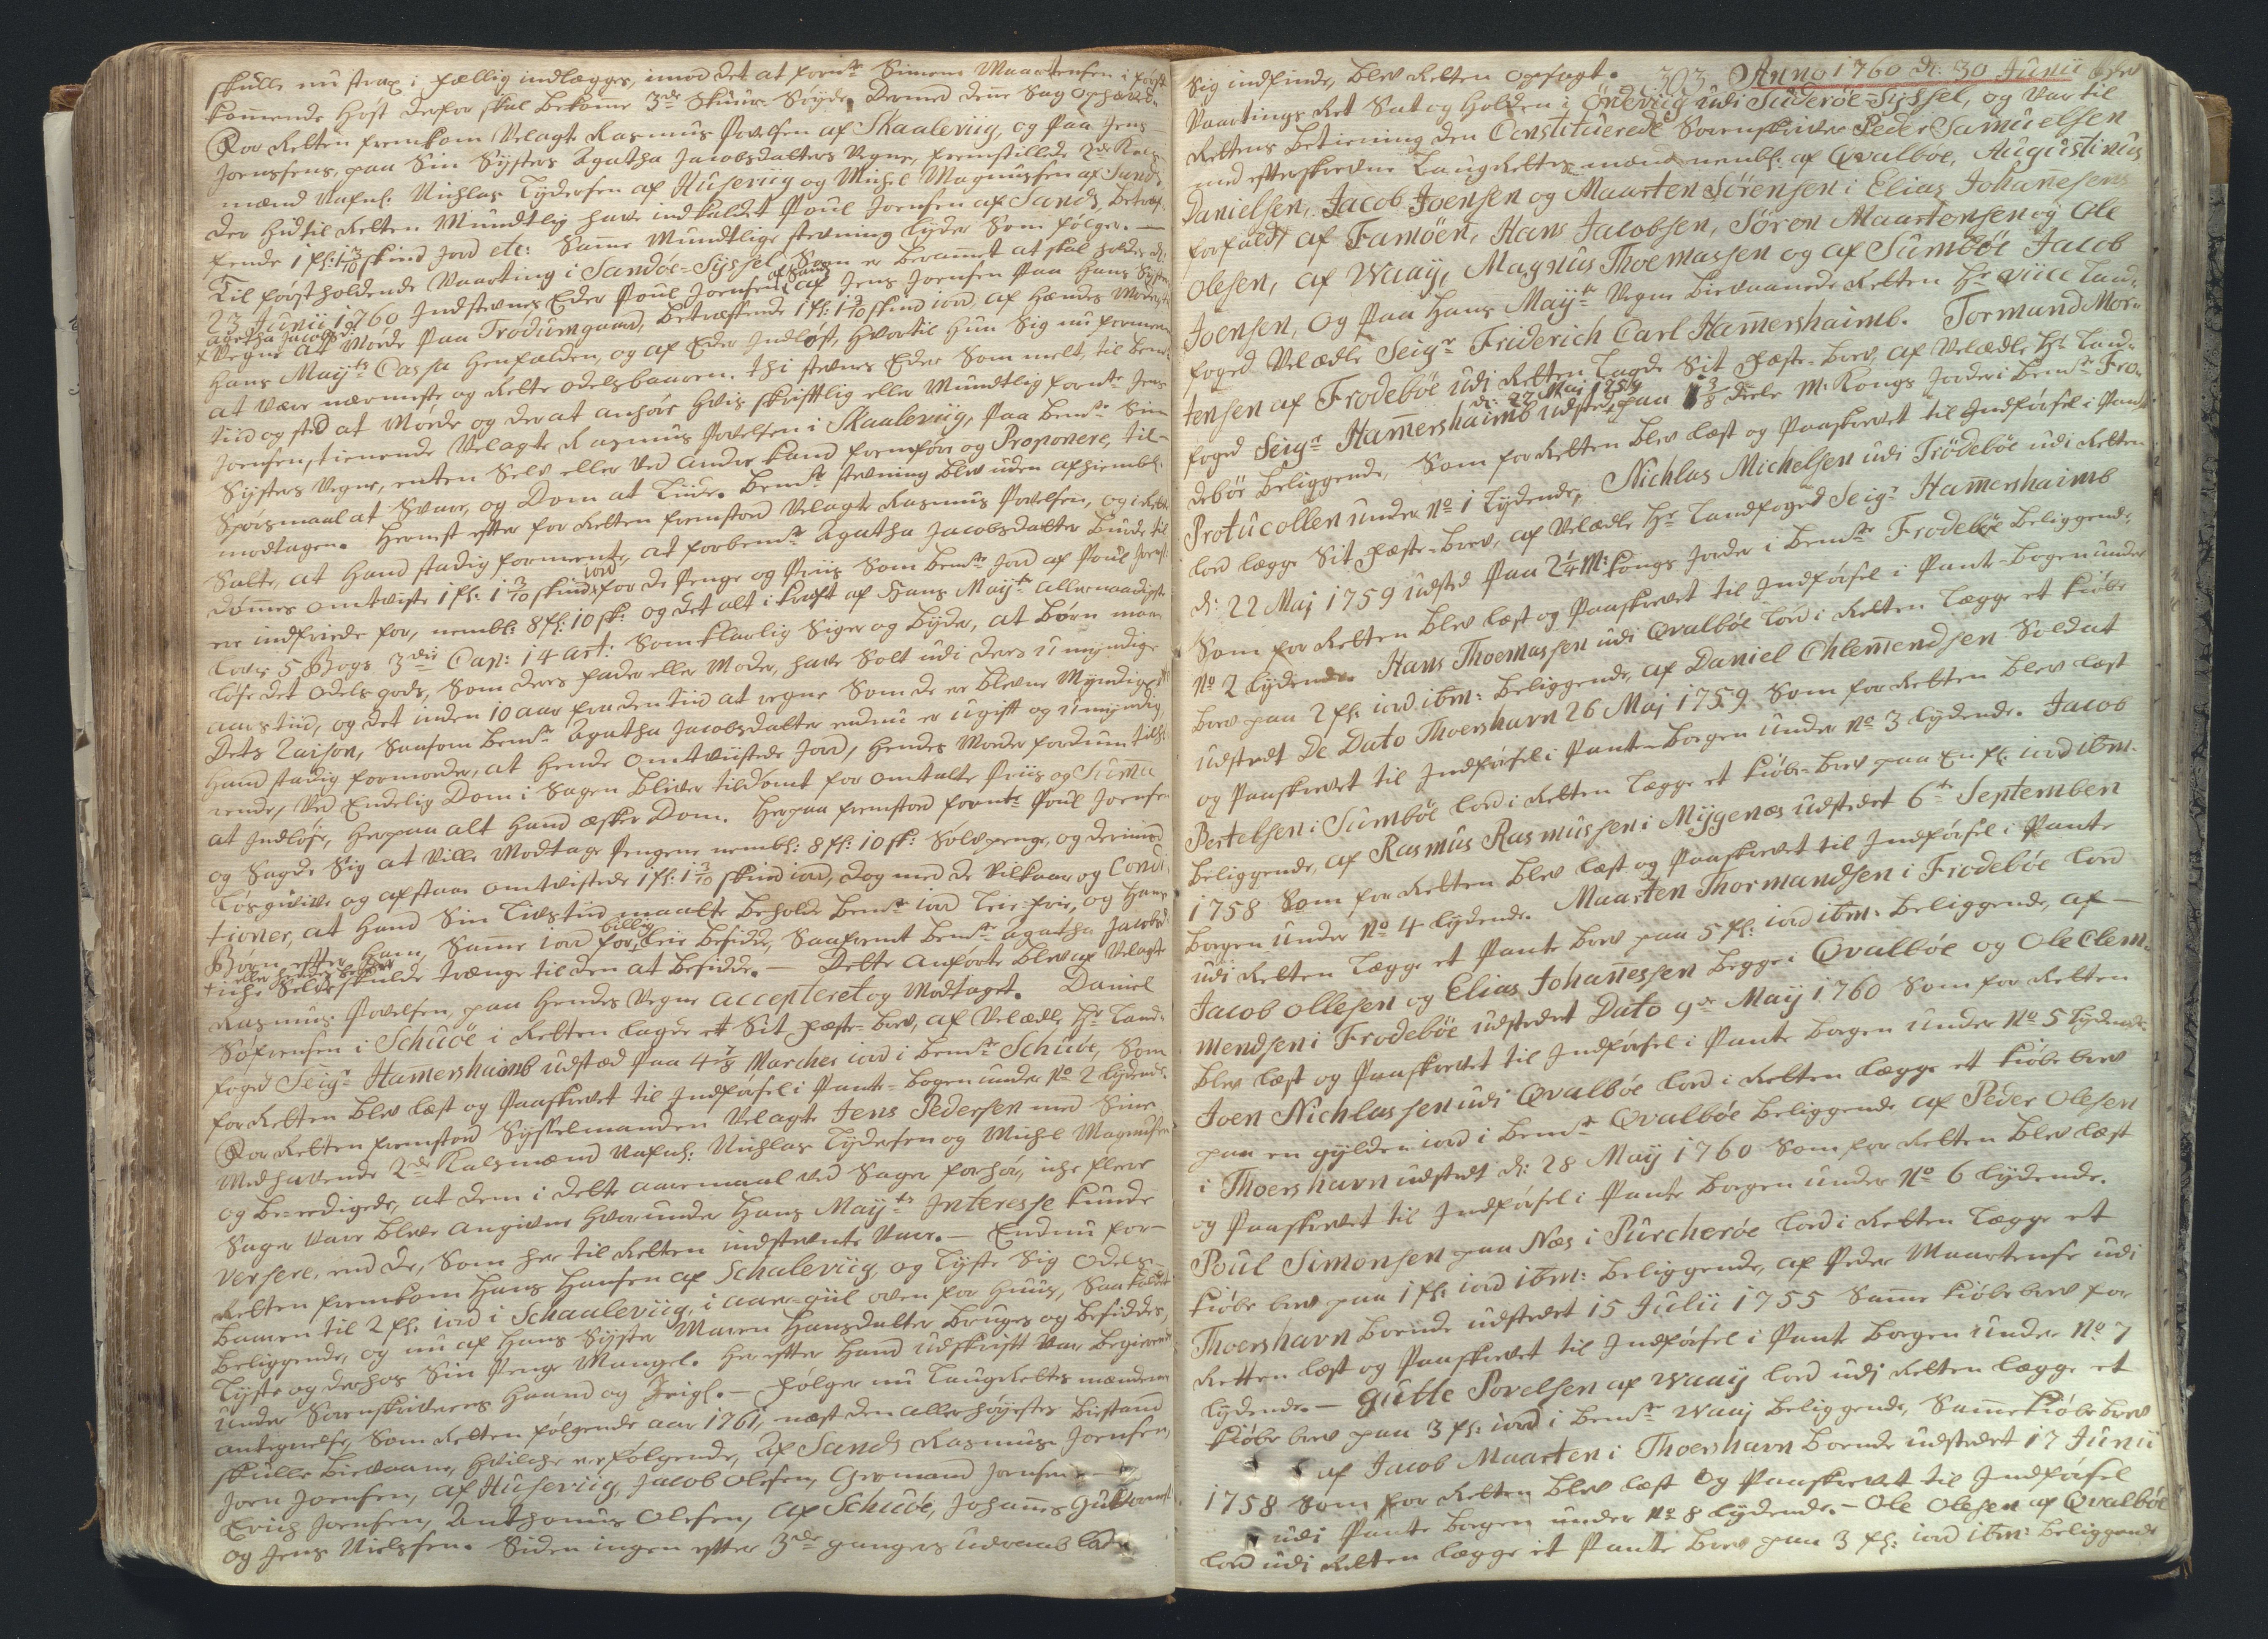 skulle nu strax i fællig indlegges, imod det at formte Simem Maartensen i først
kom̅ende Høst derfor skal bekom̅e 3de Skuur-Søyde. Dermed den̅e Sag ophæved.
For Retten fremkom Velagte Rasmus Povelsen af Skaaleviig, og paa Jens
Joenssens, paa Sin Systers Agatha Jacobsdatters Vegne, fremstillede 2de Kals-
mænd Nafnl: Nichlas Tydersen af Huseviig og Michel Magnussen af Sand,
der hidtil Retten Mundtlig have indkaldet Poul Joensen af Sand, betræf-
fende 1 fl: 1 3/10 skind Jord etc: Sam̅e Mundtlige stevning lyder som følger. —
Til førstholdende Vaarting i Sandøe-Syssel, som er beram̅et at skal holdes d:
23 Junii 1760 Indstevnes Eder Poul Joensen af Sand af Jens Joensen paa Hans Systers
Agatha Jacobsd:
+ Vegne at Møde paa Trødumgaard, betræffende 1 fl: 1 3/10 skind iord af Hendes Moder, til
Hans Mayts Cassa henfalden, og af Eder Indløst, hvortil Hun Sig nu formener
at være nærmeste og rette odelsbaaren. thi stevnes Eder som melt, til bemte
tiid og sted at Møde og der at anhøre hvis skriftlig eller Mundtlig formte Jens
Joensen, tienende Velagte Rasmus Povelsen i Skaaleviig, paa bemte Sin
Systers Vegne, enten Selv eller ved andre kand fremføre og Proponere, til-
Spørsmaal at Svare, og Dom at Liide. Bemte stevning blev uden afhiembl:
modtagen. Hernest efter for Retten fremstod Velagte Rasmus Povelsen, og i Rette
Satte, at Hand stadig formente, at forbemte Agatha Jacobsdatter burde til
døm̅es omtviste 1 fl: 1 3/10 skind iord for de Penge og Priis som bemte Jord af Poul Joens:
er indfriede for, nembl: 8 fl: 10 sk: og det alt i kraft af Hans Mayts allernaadigste
Lovs 5 Bogs 3die Cap: 14 art: som klarlig siger og byder, at Børn maae
løse det odels gods, som deres fader eller Moder, have Solt udi deres u-myndige
aars tiid, og det inden 10 aar fra den tiid at regne som de er blevne Myndige.
Dets Raison, saasom bemte Agatha Jacobsdatter endnu er ugift og umyndig,
Hand stadig formoder, at Hende omtviistede Jord, Hendes Moder fordum tilhø-
rende, ved Endelig Dom i Sagen bliver tildømt for omtalte Priis og Sum̅a
at Indløse, herpaa alt Hand æsker Dom. Herpaa fremstod formte Poul Joensen
og Sagde Sig at ville Modtage Pengene nembl: 8 fl: 10 sk: Sølvpenge, og derimod
Løsgiive og afstaae omtvistede 1 fl: 1 3/10 skind iord, dog med de Vilkaar og Condi-
tioner, at Hand Sin Livstiid maatte beholde bemte iord Leie-frie, og Hans
Børn efter Ham, Sam̅e iord for billig Leie besidde, saafremt bemte Agatha Jacobsd:
+ iche Selv skulde trænge til den at besidde. — Dette anførte blev af Velagte
Rasmus Povelsen, paa Hendes Vegne accepteret og Modtaget. Daniel
Søfrensen i Schuøe i Retten lagde et Sit fæste-brev, af Velædle Hr Land-
foged Seigr Ham̅ershaimb udsted paa 4 7/8 Marcher iord i bemte Schuøe, som
for Retten blev læst og Paaskrevet til Indførsel i Pante-bogen under No 2 lydende.
For Retten fremstod Sysselmanden Velagte Jens Pedersen med Sine
Medhavende 2de Kalsmænd Nafnl: Nichlas Tydersen og Michel Magnussen
og be-eedigede, at dem i dette aaremaal ved Sager forhør, iche flere
Sager vare bleve angivne hvorunder Hans Mayts Interesse kunde
versere, end de, som her til Retten indstevnte vare. — Endnu for-
Retten fremkom Hans Hansen af Schaleviig, og lyste Sig odels-
baaren til 2 fl: iord i Schaaleviig, i aare-giil oven for Huus, saakaldet
beliggende, og nu af Hans Syster Maren Hansdatter bruges og besiddes,
Lyste og derhos Sin Penge Mangel. Her efter Hand udskrift var begierende
under Sorenskriverens Haand og Zeigl. — følger nu Laug Rettes mændenes
antegnelse, som Retten følgende aar 1761, næst den allerhøyestes bistand
skulle bievaane, hvilche ere følgende, Af Sand Rasmus Joensen,
Joen Joensen, af Huseviig, Jacob Olesen, Germand Joensen,
Erich Joensen, Anthonius Olesen, af Schuøe, Johan̅es Guttorms:
og Jens Nielssen. Siden ingen efter 3de ganges udraab lod
Sig indfinde, blev Retten opsagt. 303. Anno 1760 d: 30 Junii blev
Vaartings Ret Sat og Holden i Ordeviig udi Suderøe-Syssel, og var til
Rettens betiening den Constituerede Sorenskriver Peder Samuelsen
med efterskrevne Laug Rettes mænd nembl: af Qvalbøe, Augustinus
Danielsen, Jacob Joensen og Maarten Sørensen i Elias Johan̅esens
forfald, af Famøen, Hans Jacobsen, Søren Maartensen og Ole
Olesen, af Waay, Magnus Thoemassen og af Sumbøe Jacob
Joensen, Og paa Hans Mayts Vegne bievaanede Retten Hr Viice Land-
foged Velædle Seigr Friderich Carl Ham̅ershaimb. Tormand Mor-
tensen af Frodebøe udi Retten Lagde Sit fæste-brev, af Velædle Hr Land-
foged Seigr Ham̅ershaimb d: 22 Maj 1759 udsted paa 3/8 deele M: Kongs Jorde i bemte Fro-
debøe beliggende, som for Retten blev læst og Paaskrevet til Indførsel i Pant-
Protucollen under No 1 lydende, Nichlas Michelsen udi Frodebøe udi Retten
lod legge Sit fæste-brev, af Velædle Hr Landfoged Seigr Ham̅ershaimb
d: 22 Maj 1759 udsted paa 2 1/4 M: kongs Jorder i bemte Frodebøe beliggende,
som for Retten blev læst og Paaskrevet til Indførsel i Pante-bogen under
No 2 lydende. Hans Thoemassen udi Qvalbøe lod i Retten lægge et kiøbe
brev paa 2 fl: iord ibm: beliggende, af Daniel Chlem̅endsen Soldat
udstedt De Dato Thoershavn 26 Maj 1759 som for Retten blev læst
og Paaskrevet til Indførsel i Pante-bogen under No 3 lydende. Jacob
Pertelsen i Sumbøe lod i Retten lægge et kiøbe-brev paa En fl: iord ibm:
beliggende, af Rasmus Rasmussen i Mygenæs udstedet 6te September
1758 som for Retten blev læst og Paaskrevet til Indførsel i Pante
bogen under No 4 lydende. Maarten Thormandsen i Frodebøe lod
udi Retten lægge et Pante brev paa 5 fl: iord ibm: beliggende, af —
Jacob Ollesen og Elias Johan̅essen begge i Qvalbøe og Ole Clem-
mendsen i Frodebøe udstedet Dato 9de May 1760 som for Retten
blev læst og Paaskrevet til Indførsel i Pante bogen under No 5 lydende.
Joen Nichlassen udi Qvalbøe lod i Retten lægge et kiøbe brev
paa en gylden iord i bemte Qvalbøe beliggende af Peder Olesen
i Thoershavn udstedt d: 28 May 1760 som for Retten blev læst
og Paaskrevet til Indførsel i Pante bogen under No 6 lydende.
Poul Simonsen paa Næs i Purcherøe lod i Retten lægge et
kiøbe brev paa 1 fl: iord ibm: beliggende, af Peder Maartense udi
Thoershavn boende udstedet 15 Julii 1755 Sam̅e kiøbe brev for
Retten læst og Paaskrevet til Indførsel i Pante bogen under No 7
lydende. — Gutte Povelsen af Waay lod udi Retten lægge et
kiøbe brev paa 3 fl: iord i bemte Waay beliggende, Sam̅e kiøbe brev
af Jacob Maarten i Thoershavn boende udstedet 17 Junii
1758 som for Retten blev læst og Paaskrevet til Indførsel
udi Pante bogen under No 8 lydende. — Ole Olesen af Qvalbøe
lod udi Retten lægge et Pante brev paa 3 fl: iord ibm: beliggende